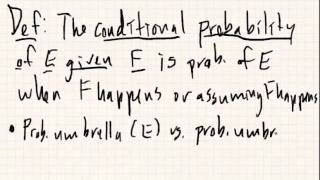 Def: The conditional probability
of E given F is prob. of E
when F happens or assuming F happens
• Prob. umbrella (E) vs. prob. umbr.